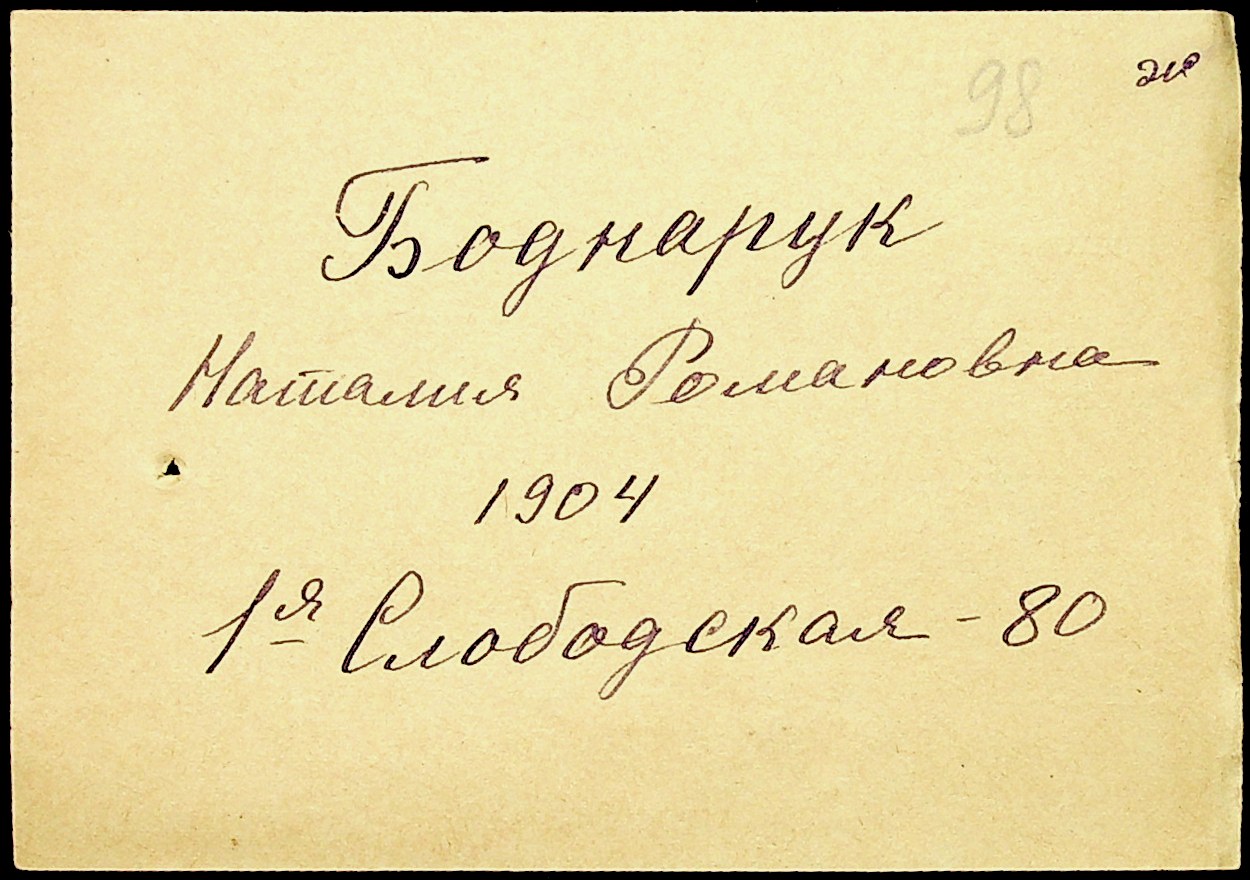 98
Боднарук
Наталия Романовна
1904
1я Слободская - 80